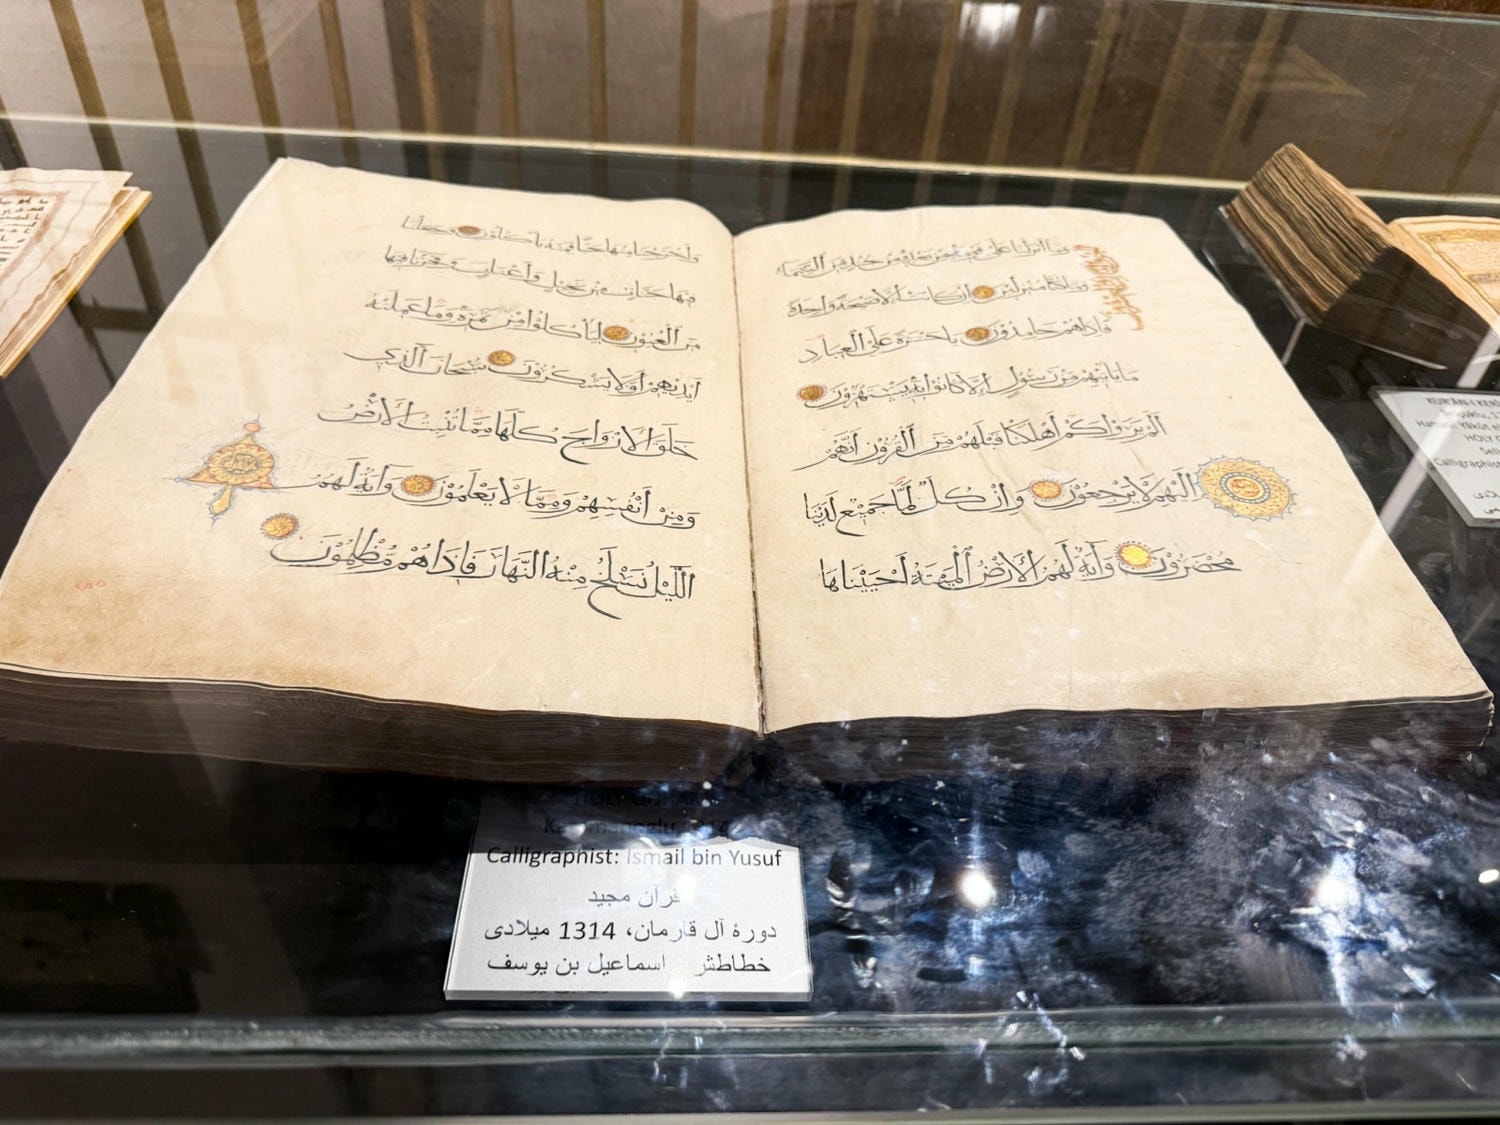 وَمَا أَنْزَلْنَا عَلَى قَوْمِهِ مِنْ بَعْدِهِ مِنْ جُنْدٍ مِنَ السَّمَاءِ
وَمَا كُنَّا مُنْزِلِينَ إِنْ كَانَتْ إِلَّا صَيْحَةً وَاحِدَةً
فَإِذَا هُمْ خَامِدُونَ يَا حَسْرَةً عَلَى الْعِبَادِ
مَا يَأْتِيهِمْ مِنْ رَسُولٍ إِلَّا كَانُوا بِهِ يَسْتَهْزِؤُنَ
أَلَمْ يَرَوْا كَمْ أَهْلَكْنَا قَبْلَهُمْ مِنَ الْقُرُونِ أَنَّهُمْ
إِلَيْهِمْ لَا يَرْجِعُونَ وَإِنْ كُلٌّ لَمَّا جَمِيعٌ لَدَيْنَا
مُحْضَرُونَ وَآيَةٌ لَهُمُ الْأَرْضُ الْمَيْتَةُ أَحْيَيْنَاهَا
وَأَخْرَجْنَا مِنْهَا حَبًّا فَمِنْهُ يَأْكُلُونَ وَجَعَلْنَا
فِيهَا جَنَّاتٍ مِنْ نَخِيلٍ وَأَعْنَابٍ وَفَجَّرْنَا فِيهَا
مِنَ الْعُيُونِ لِيَأْكُلُوا مِنْ ثَمَرِهِ وَمَا عَمِلَتْهُ
أَيْدِيهِمْ أَفَلَا يَشْكُرُونَ سُبْحَانَ الَّذِي
خَلَقَ الْأَزْوَاجَ كُلَّهَا مِمَّا تُنْبِتُ الْأَرْضُ
وَمِنْ أَنْفُسِهِمْ وَمِمَّا لَا يَعْلَمُونَ وَآيَةٌ لَهُمُ
اللَّيْلُ نَسْلَخُ مِنْهُ النَّهَارَ فَإِذَا هُمْ مُظْلِمُونَ
HOLY QURAN
Karamanoglu, 1314
Calligraphist: Ismail bin Yusuf
قرآن مجید
دورۀ آل قارمان، 1314 میلادی
خطاطش اسماعیل بن یوسف
KUR'AN-I KERİ
HOLY
Calligraphis